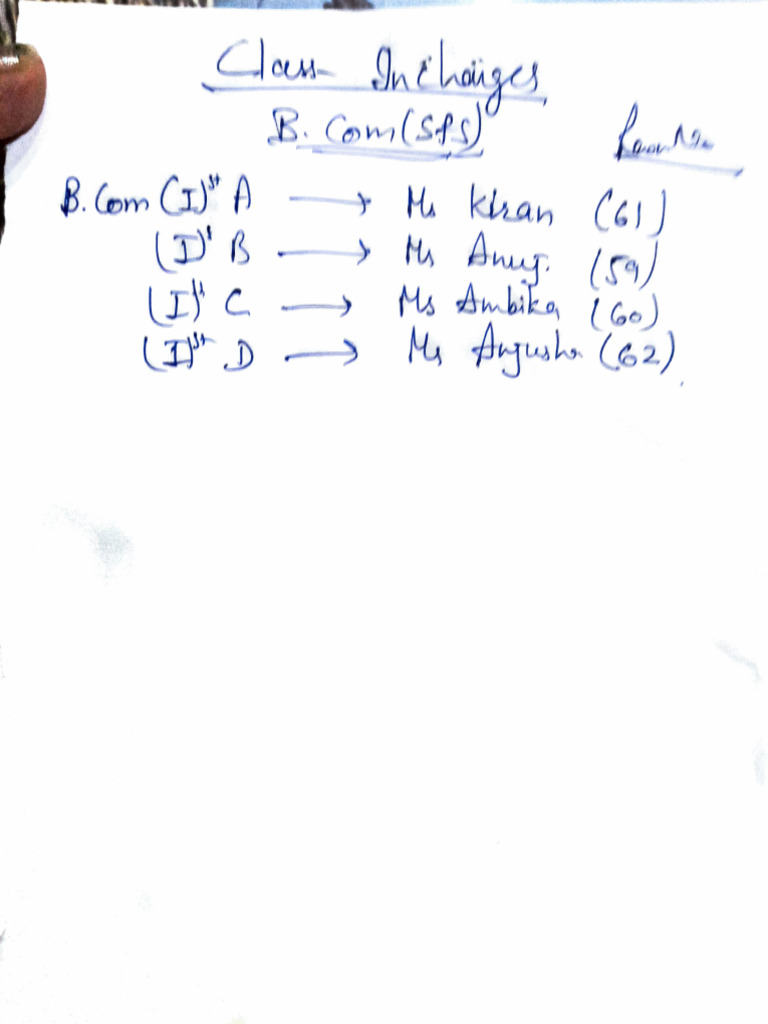 Class Incharges
B. Com (SPS)
Room No.
B. Com (I)st A → Ms Khan (61)
(I)st B → Ms Anuj. (59)
(I)st C → Ms Ambika (60)
(I)st D → Ms Angusha (62)